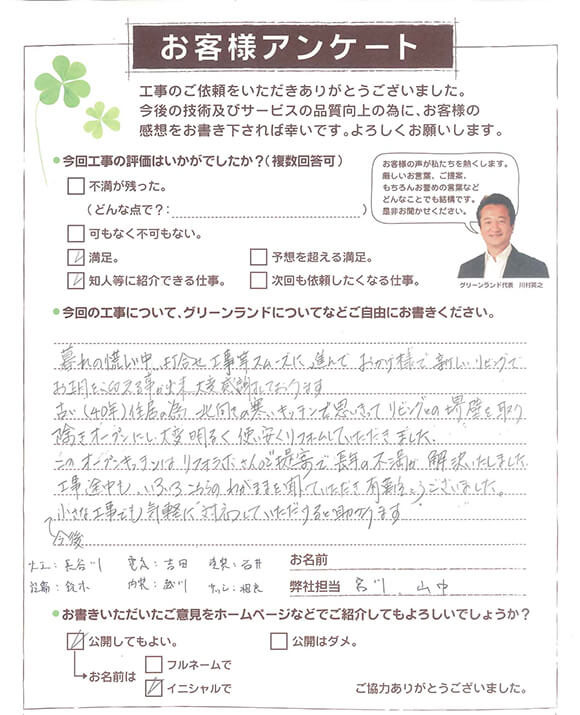 お客様アンケート
工事のご依頼をいただきありがとうございました。
今後の技術及びサービスの品質向上の為に、お客様の
感想をお書き下されば幸いです。よろしくお願いします。
今回工事の評価はいかがでしたか?(複数回答可)
不満が残った。
(どんな点で?: )
可もなく不可もない。
満足。
予想を超える満足。
知人等に紹介できる仕事。
次回も依頼したくなる仕事。
お客様の声が私たちを熱くします。
厳しいお言葉、ご提案、
もちろんお誉めの言葉など
どんなことでも結構です。
是非お聞かせください。
グリーンランド代表 川村英之
今回の工事について、グリーンランドについてなどご自由にお書きください。
暮れの慌しい中、打合せ、工事等スムーズに進んでおかげ様で新しいリビングで
お正月を迎える事が出来、大変感謝しております
古い(40年)住居の為、北向きの寒いキッチンを思いきってリビングとの境壁を取り
除きオープンにし大変明るく使い安くリフォームしていただきました。
このオープンキッチンはリフォラボさんのご提案で長年の不満が解決いたしました
工事途中も、いろいろこちらのわがままを聞いていただき有難うございました。
小さな工事でも気軽に対応していただけると助かります
今後
大工:長谷川 電気:吉田 塗装:石井
設備:鈴木 内装:
お名前
弊社担当 宮川、山中
お書きいただいたご意見をホームページなどでご紹介してもよろしいでしょうか?
公開してもよい。
公開はダメ。
お名前は
フルネームで
イニシャルで
ご協力ありがとうございました。